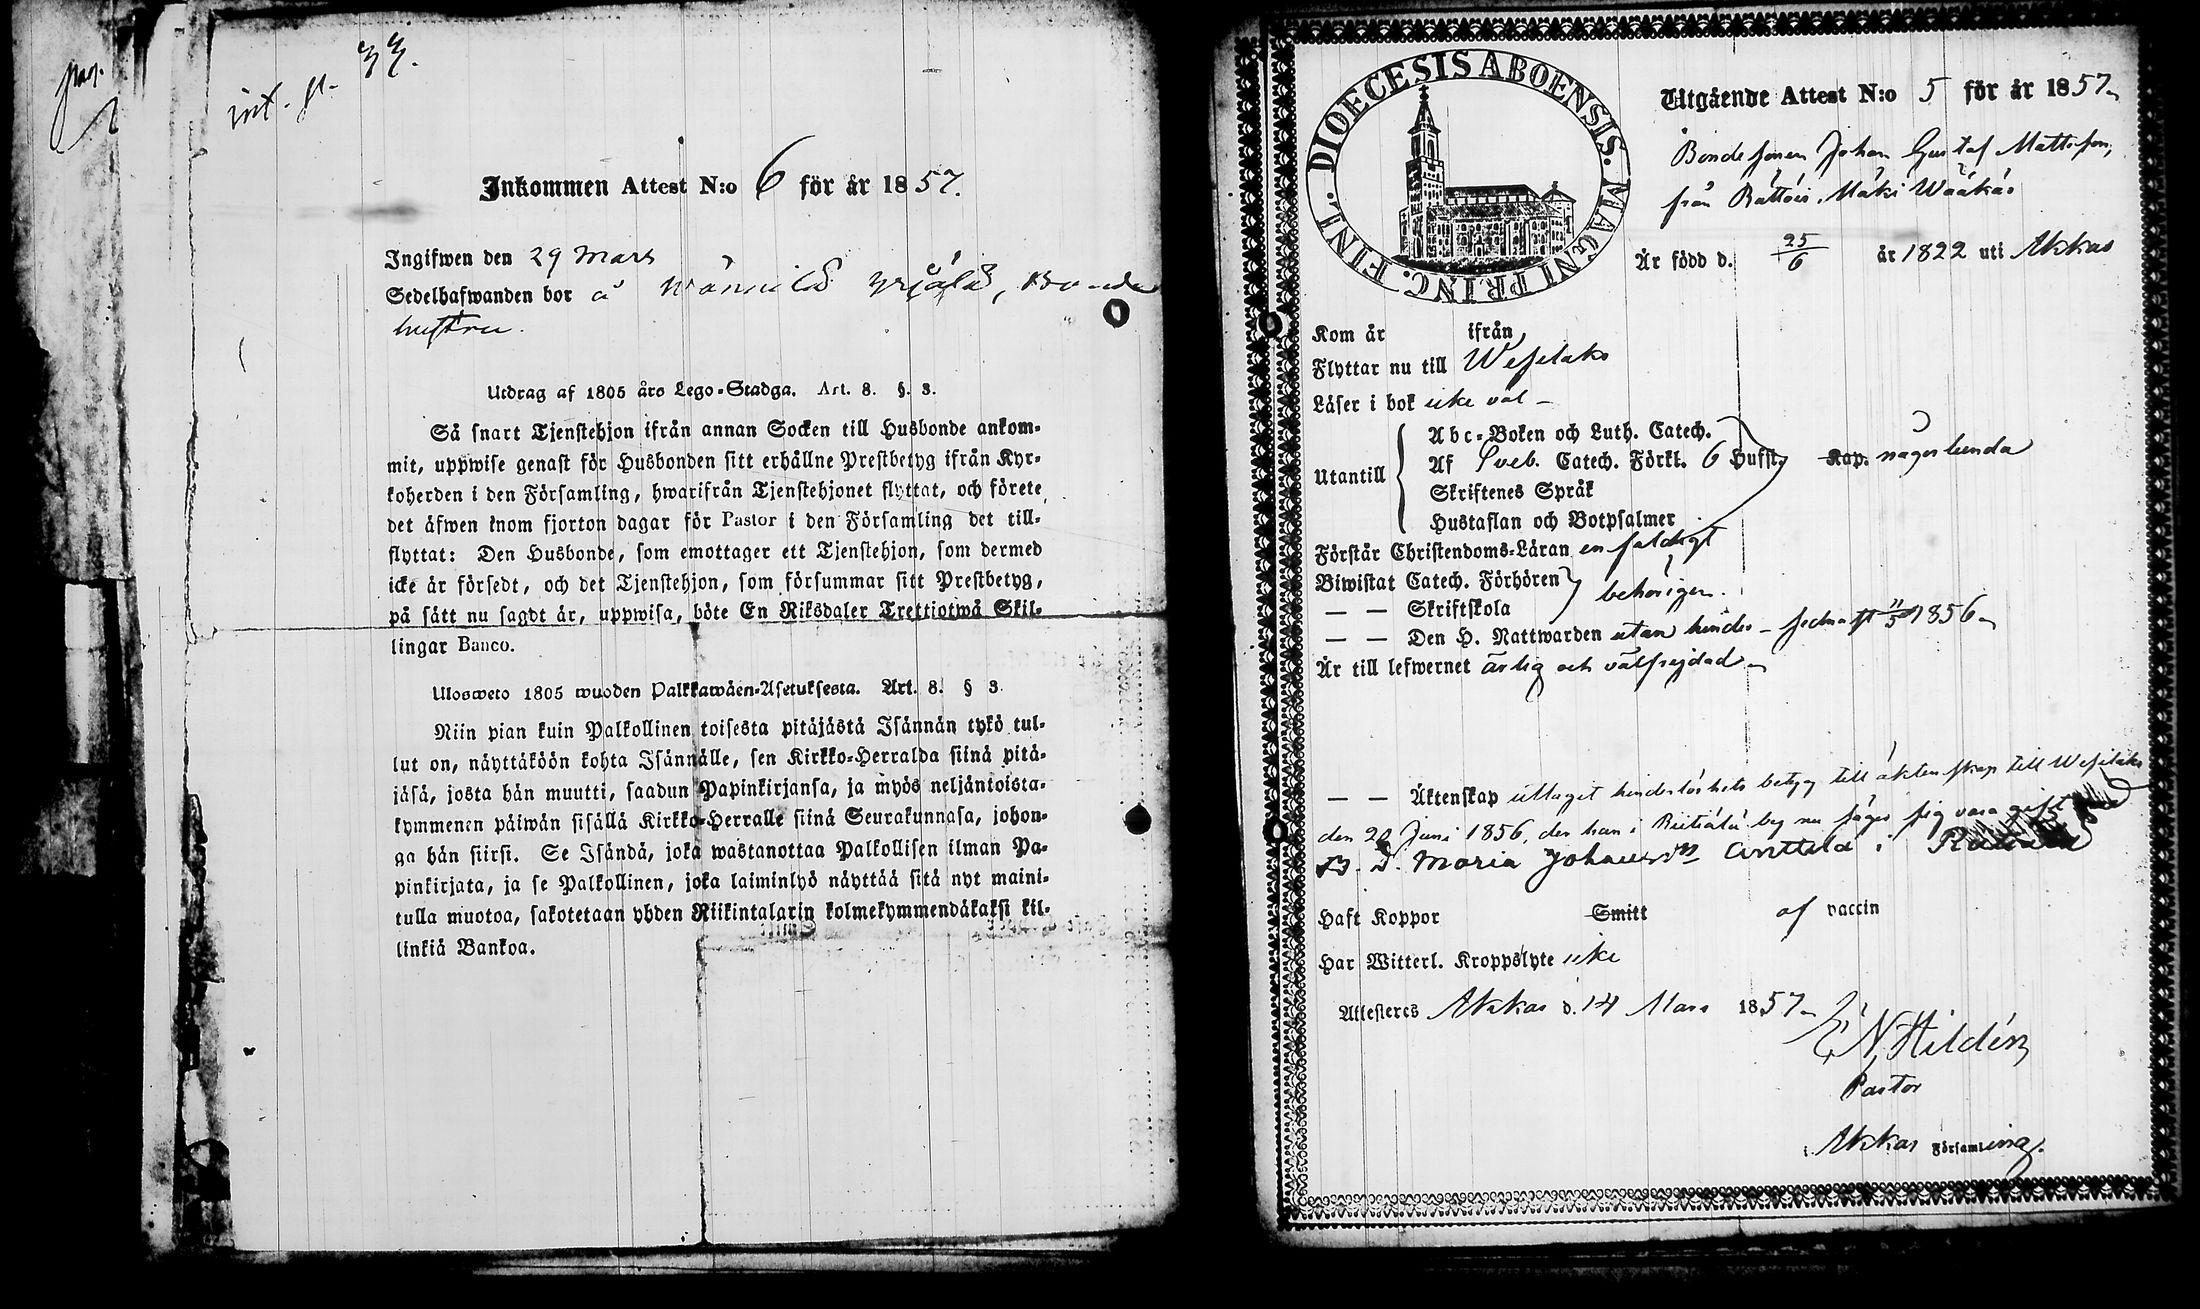 int. p. 34.
Inkommen Attest N:o 6 för år 1857.
Ingifwen den 29 Mars
Sedelhafwanden bor å Wännilä Yrjälä, Bonde
hustru.
Utdrag af 1805 års Lego-Stadga. Art. 8. §. 3.
Så snart Tjenstehjon ifrån annan Socken till Husbonde ankom-
mit, uppwise genast för Husbonden sitt erhållne Prestbetyg ifrån Kyr-
koherden i den Församling, hwarifrån Tjenstehjonet flyttat, och förete
det äfwen inom fjorton dagar för Pastor i den Församling det till-
flyttat: Den Husbonde, som emottager ett Tjenstehjon, som dermed
icke är försedt, och det Tjenstehjon, som försummar sitt Prestbetyg,
på sätt nu sagdt är, uppwisa, böte En Riksdaler Trettiotwå Skil-
lingar Banco.
Ulosweto 1805 wuoden Palkkawäen-Asetuksesta. Art. 8. § 3.
Niin pian kuin Palkollinen toisesta pitäjästä Isännän tykö tul-
lut on, näyttäköön kohta Isännälle, sen Kirkko-Herralda siinä pitä-
jäsä, josta hän muutti, saadun Papinkirjansa, ja myös neljäntoista-
kymmenen päiwän sisällä Kirkko-Herralle siinä Seurakunnasa, johon-
ga hän siirsi. Se Isändä, joka wastanottaa Palkollisen ilman Pa-
pinkirjata, ja se Palkollinen, joka laiminlyö näyttää sitä nyt maini-
tulla muotoa, sakotetaan yhden Riikintalarin kolmekymmendäkaksi kil-
linkiä Bankoa.
DIOECESIS ABOENSIS. MAGNI PRINC. FINL.
Utgående Attest N:o 5 för år 1857
Bondesonen Johan Gustaf Mattsson,
från Rättöis, Mäki Wääkäs
Är född d. 25/6 år 1822 uti Akkas
Kom år ifrån
Flyttar nu till Wesilaks
Läser i bok icke väl
Utantill
Abc-Boken och Luth. Catech.
Af Sveb. Catech. Förkl. 6 Hufst. Kap. någorlunda
Skriftenes Språk
Hustaflan och Botpsalmer
Förstår Christendoms-Läran enfaldigt
Biwistat Catech. Förhören behörigen.
— — Skriftskola
— — Den H. Nattwarden utan hinder - sednast 11/5 1856
Är till lefwernet ärlig och välfrejdad
— — Äktenskap uttaget hinderlöshets betyg till äktenskap till Wesilaks
den 20 Juni 1856, der han i Riitiälä by nu säges sig vara gift med
B. D. Maria Johansdr Anttila i
Haft Koppor Smitt af vaccin
Har Witterl. Kroppslyte icke
Attesteres Akkas d. 14 Mars 1857
E. N. Hildén
Pastor
i Akkas Församling.